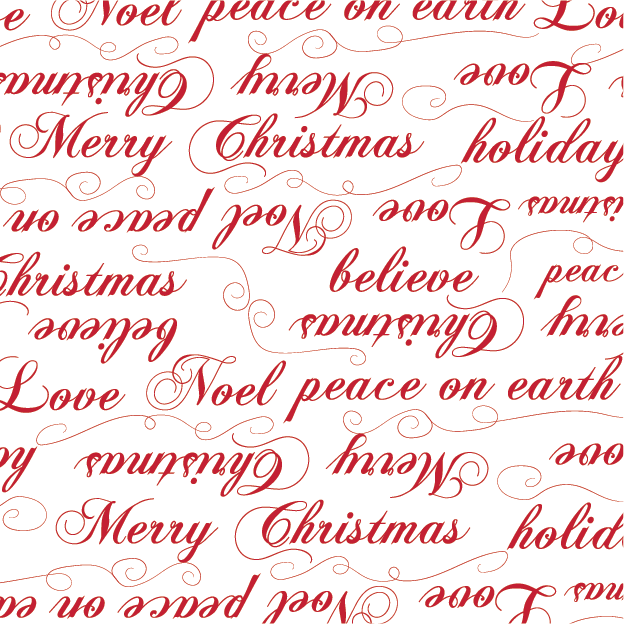 e Noel peace on earth Lo
Love Merry Christmas
Merry Christmas holiday
istmas Love Noel peace on
Christmas believe peac
Merry Christmas believe
Love Noel peace on earth
Love Merry Christmas
Merry Christmas holid
Love Noel peace on ea